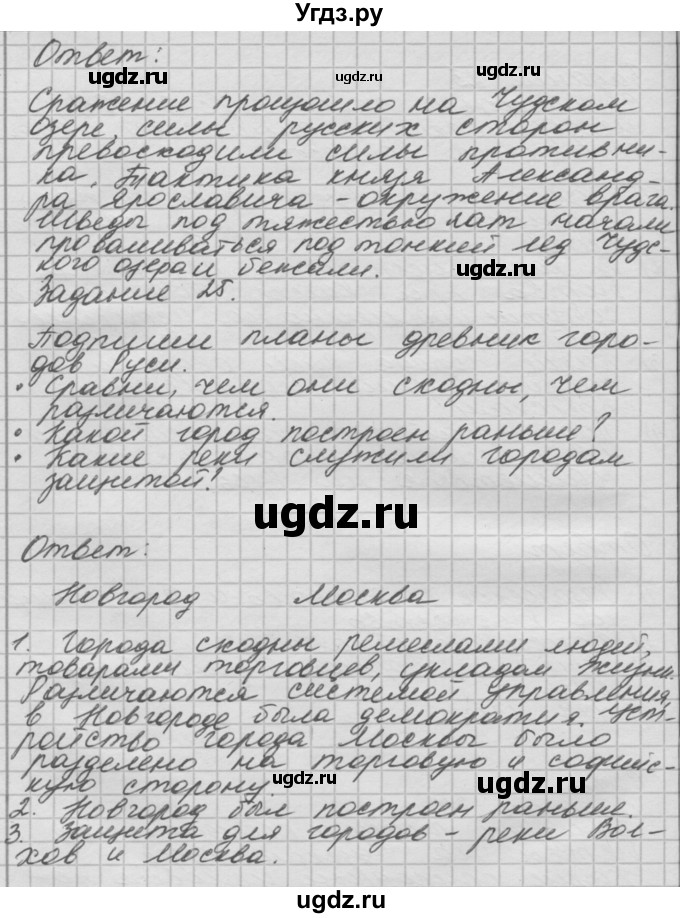 Угдз.ру
Ответ:
ugdz.ru ugdz.ru ugdz.ru
Сражение прошошло на Чудском
озере, силы русских сторон
превосходили силы противни-
ка. Тактика князя Александ-
ра Ярославича - окружение врага.
Шведы под тяжестью лат начали
проваливаться под тонкий лед Чудс-
кого озера и бежали.
ugdz.ru
Задание 25.
Подпиши планы древних горо-
дов Руси.
• Сравни, чем они сходны, чем
различаются.
• Какой город построен раньше?
• Какие реки служили городам
защитой?
ugdz.ru
Ответ:
Новгород Москва
1. Города сходны ремеслами людей,
товарами торговцев, укладом жизни.
Различаются системой управления,
в Новгороде была демократия. Уст-
ройство города Москвы было
разделено на торговую и софийс-
кую сторону.
ugdz.ru ugdz.ru
2. Новгород был построен раньше.
3. Защита для городов - реки Вол-
хов и Москва.
ugdz.ru